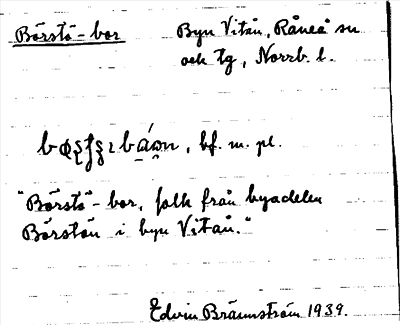 Börstö-bor
Byn Vitån, Råneå sn
och tg, Norrb. l.
bf. m. pl.
"Börstö"-bor, folk från byadelen
Börstön i byn Vitån."
Edvin Brännström 1939.